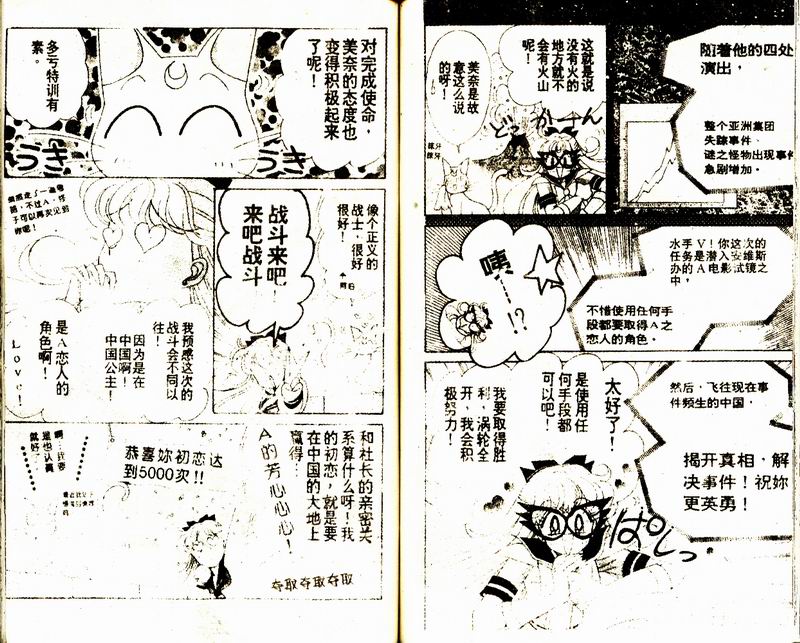 随着他的四处
演出，
整个亚洲集团
失踪事件
谜之怪物出现事件
急剧增加。
这就是说
没有火的
地方就不
会有火山
呢！
美奈是故
意这么说
的呀！
かーん
どっ
水手V！你这次的
任务是潜入安维斯
办的A电影试镜之
中，
不惜使用任何手
段都要取得A之
恋人的角色。
咦……!?
然后，飞往现在事
件频生的中国，
揭开真相，解
决事件！祝妳
更英勇！
太好了！
是使用任
何手段都
可以吧！
我要取得胜
利，涡轮全
开，我会积
极努力！
ぱしっ
对完成使命，
美奈的态度也
变得积极起来
了呢！
多亏特训有
素。
うき
うき
像个正义的
战士，很好
很好！
战斗来吧
来吧战斗
我预感这次的
战斗会不同以
往！
因为是在
中国啊！
中国公主！
是A恋人的
角色啊！
Love！
和社长的亲密关
系算什么呀！我
的初恋，就是要
在中国的大地上
赢得…
A的芳心心心！
夺取夺取夺取
恭喜妳初恋达
到5000次!!